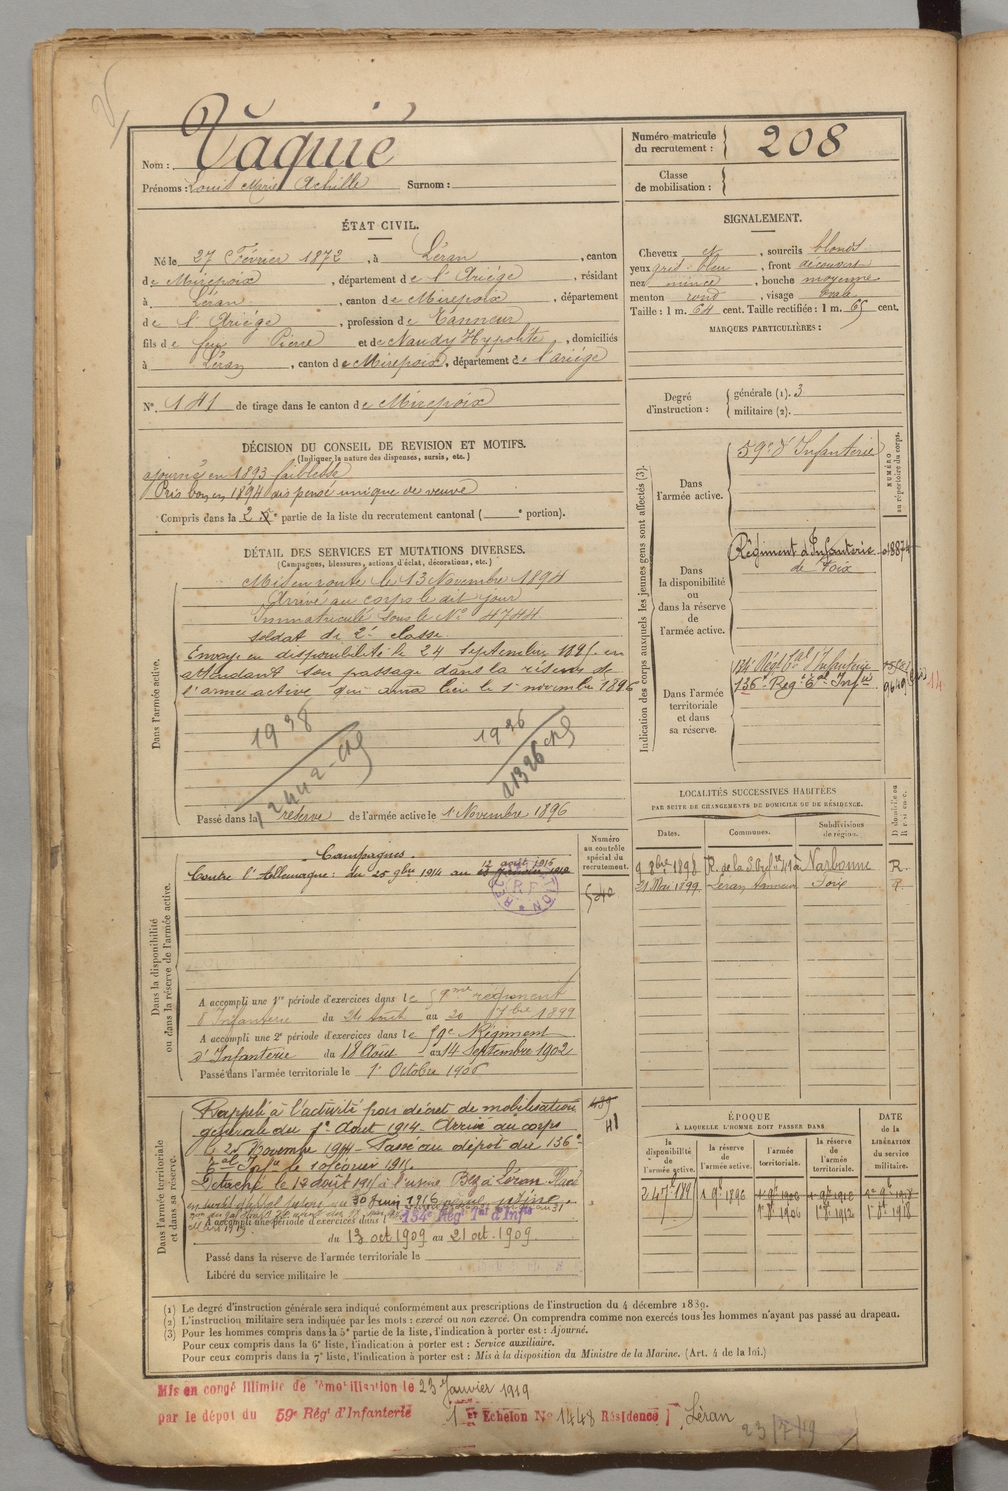 Nom : Vaquié
Prénoms : Louis Marie Achille Surnom :
Numéro matricule du recrutement : 208
Classe de mobilisation :
ÉTAT CIVIL.
Né le 27 Février 1872, à Léran, canton
de Mirepoix, département de l'Ariège, résidant
à Léran, canton de Mirepoix, département
de l'Ariège, profession de Tanneur
fils de feu Pierre et de Naudy Hypolite, domiciliés
à Léran, canton de Mirepoix, département de l'ariège
N° 141 de tirage dans le canton de Mirepoix
SIGNALEMENT.
Cheveux et, sourcils blonds
yeux gris bleu, front découvert
nez mince, bouche moyenne
menton rond, visage oval
Taille : 1 m. 64 cent. Taille rectifiée : 1 m. 65 cent.
MARQUES PARTICULIÈRES :
Degré d'instruction : générale (1). 3
militaire (2).
DÉCISION DU CONSEIL DE REVISION ET MOTIFS.
(Indiquer la nature des dispenses, sursis, etc.)
ajourné en 1893 faiblesse
Pris bon en 1894 dispensé unique de veuve
Compris dans la 2 e partie de la liste du recrutement cantonal ( e portion).
DÉTAIL DES SERVICES ET MUTATIONS DIVERSES.
(Campagnes, blessures, actions d'éclat, décorations, etc.)
Dans l'armée active.
Mis en route le 13 Novembre 1894
Arrivé au corps le dit jour
Immatriculé sous le N° 4744
soldat de 2e classe
Envoyé en disponibilité le 24 septembre 1895 en
attendant son passage dans la réserve de
l'armée active qui aura lieu le 1er novembre 1896
1938
1936
Passé dans la réserve de l'armée active le 1 Novembre 1896
Indication des corps auxquels les jeunes gens sont affectés (3).
NUMÉRO au répertoire du corps.
Dans l'armée active.
59e d'Infanterie
Dans la disponibilité ou dans la réserve de l'armée active.
Régiment d'Infanterie
de Foix
Dans l'armée territoriale et dans sa réserve.
134e Régt Tal d'Infanterie
136e Regt Tal Infie
LOCALITÉS SUCCESSIVES HABITÉES
PAR SUITE DE CHANGEMENTS DE DOMICILE OU DE RÉSIDENCE.
Dates. Communes. Subdivisions de région. D domicile ou R résidence.
9 8bre 1898 Narbonne R.
21 Mai 1899 Léran tanneur Foix
Dans la disponibilité ou dans la réserve de l'armée active.
Numéro au contrôle spécial du recrutement.
Campagnes
12 août 1915
Contre l'Allemagne : du 25 9bre 1914 au
540
A accompli une 1re période d'exercices dans le 59me régiment
d'Infanterie du 24 Août au 20 7bre 1899
A accompli une 2e période d'exercices dans le 59e Régiment
d'Infanterie du 18 Août au 14 Septembre 1902
Passé dans l'armée territoriale le 1er Octobre 1906
Dans l'armée territoriale et dans sa réserve.
Rappelé à l'activité par décret de mobilisation
générale du 1er Août 1914 - Arrivé au corps
le 25 Novembre 1914 - Passé au dépôt du 136e
Tal Infie le 10 février 1915
Détaché le 13 août 1915 à l'usine à Léran
134e Régt Tal d'Infie
A accompli une période d'exercices dans l
du 13 oct 1909 au 21 oct. 1909.
Passé dans la réserve de l'armée territoriale le
Libéré du service militaire le
ÉPOQUE
À LAQUELLE L'HOMME DOIT PASSER DANS
la disponibilité de l'armée active. la réserve de l'armée active. l'armée territoriale. la réserve de l'armée territoriale.
DATE de la LIBÉRATION du service militaire.
24 7bre 1895 1 9bre 1896
1er 8bre 1906 1er 8bre 1912 1er 8bre 1918
(1) Le degré d'instruction générale sera indiqué conformément aux prescriptions de l'instruction du 4 décembre 1889.
(2) L'instruction militaire sera indiquée par les mots : exercé ou non exercé. On comprendra comme non exercés tous les hommes n'ayant pas passé au drapeau.
(3) Pour les hommes compris dans la 5e partie de la liste, l'indication à porter est : Ajourné.
Pour ceux compris dans la 6e liste, l'indication à porter est : Service auxiliaire.
Pour ceux compris dans la 7e liste, l'indication à porter est : Mis à la disposition du Ministre de la Marine. (Art. 4 de la loi.)
Mis en congé illimité de démobilisation le 23 Janvier 1919
par le dépot du 59e Régt d'Infanterie
1er Echelon No 1448 Résidence Léran
23/7/19